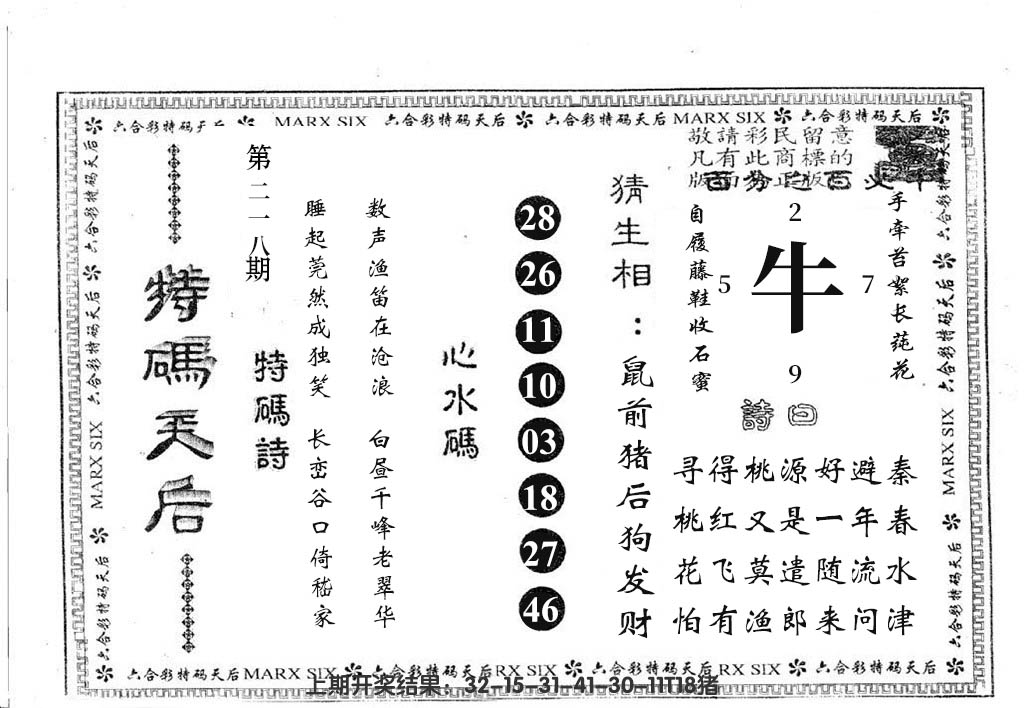 六合彩特码天后 MARX SIX 六合彩特码天后 六合彩特码天后 MARX SIX 六合彩特码天后
敬請彩民留意
凡有此商標的
手牵苔絮长莼花
自履藤鞋收石蜜
2
5 牛 7
9
詩曰
寻得桃源好避秦
桃红又是一年春
花飞莫遣随流水
怕有渔郎来问津
猜生相：鼠前猪后狗发财
28
26
11
10
03
18
27
46
心水碼
数声渔笛在沧浪 白昼千峰老翠华
睡起莞然成独笑 长峦谷口倚嵇家
特碼詩
第二一八期
特碼天后
六合彩特码天后 MARX SIX 六合彩特码天后
六合彩特码天后 MARX SIX 六合彩特码天后
六合彩特码天后 MARX SIX 六合彩特码天后 RX SIX 六合彩特码天后 RX SIX 六合彩特码天后
上期开奖结果：32-15-31-41-30-11T18猪